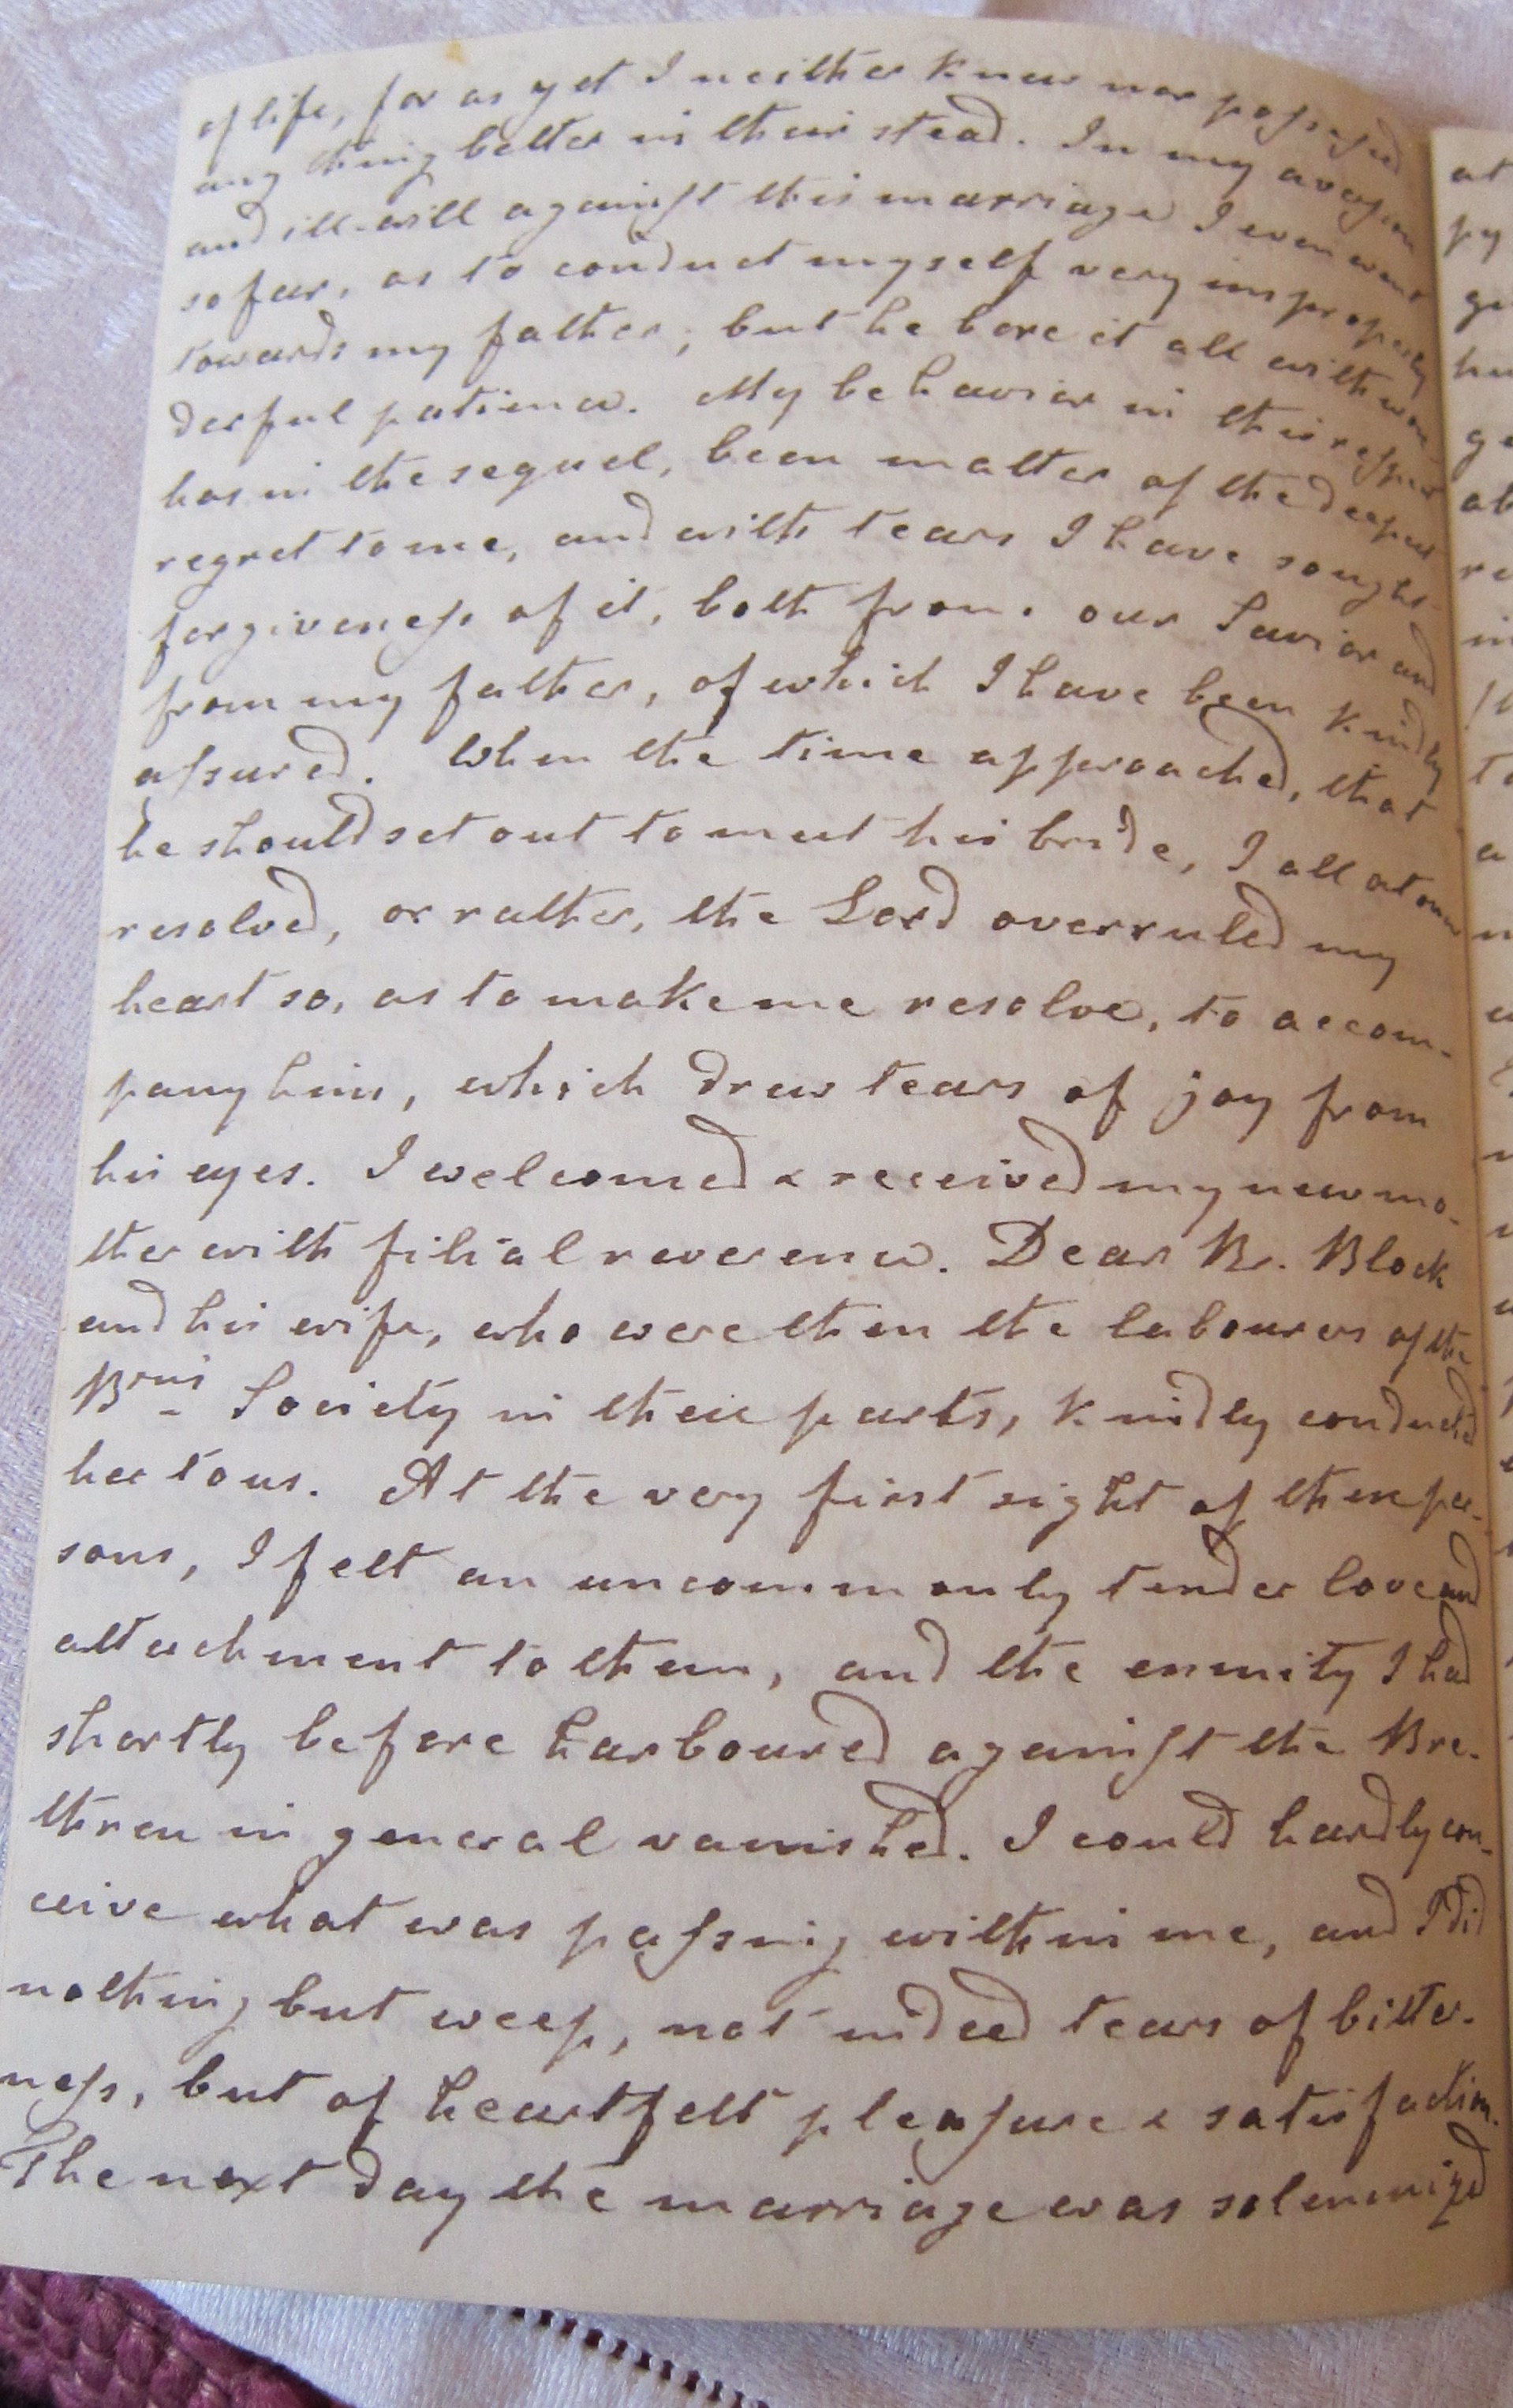 of life, for as yet I neither knew nor poſseſsed
any thing better in their stead. In my aversion
and ill-will againſt this marriage I even went
so far, as to conduct myself very improperly
towards my father, but he bore it all with won-
derful patience. My behavior in this respect
has in the sequel, been matter of the deepest
regret to me, and with tears I have sought
forgiveneſs of it, both from our Savior and
from my father, of which I have been kindly
aſsured. When the time approached, that
he should set out to meet his bride, I all at once
resolved, or rather, the Lord overruled my
heart so, as to make me resolve, to accom-
pany him, which drew tears of joy from
his eyes. I welcomed & received my new mo-
ther with filial reverence. Dear Br. Block
and his wife, who were then the labourers of the
Brns Society in their parts, kindly conducted
her to us. At the very first sight of these per-
sons, I felt an uncommonly tender love and
attachment to them, and the enmity I had
shortly before harboured againſt the Bre-
thren in general vanished. I could hardly con-
ceive what was paſsing within me, and I did
nothing but weep, not indeed tears of bitter-
neſs, but of heartfelt pleaſure & satisfaction.
The next day the marriage was solemnized
at
py
ge